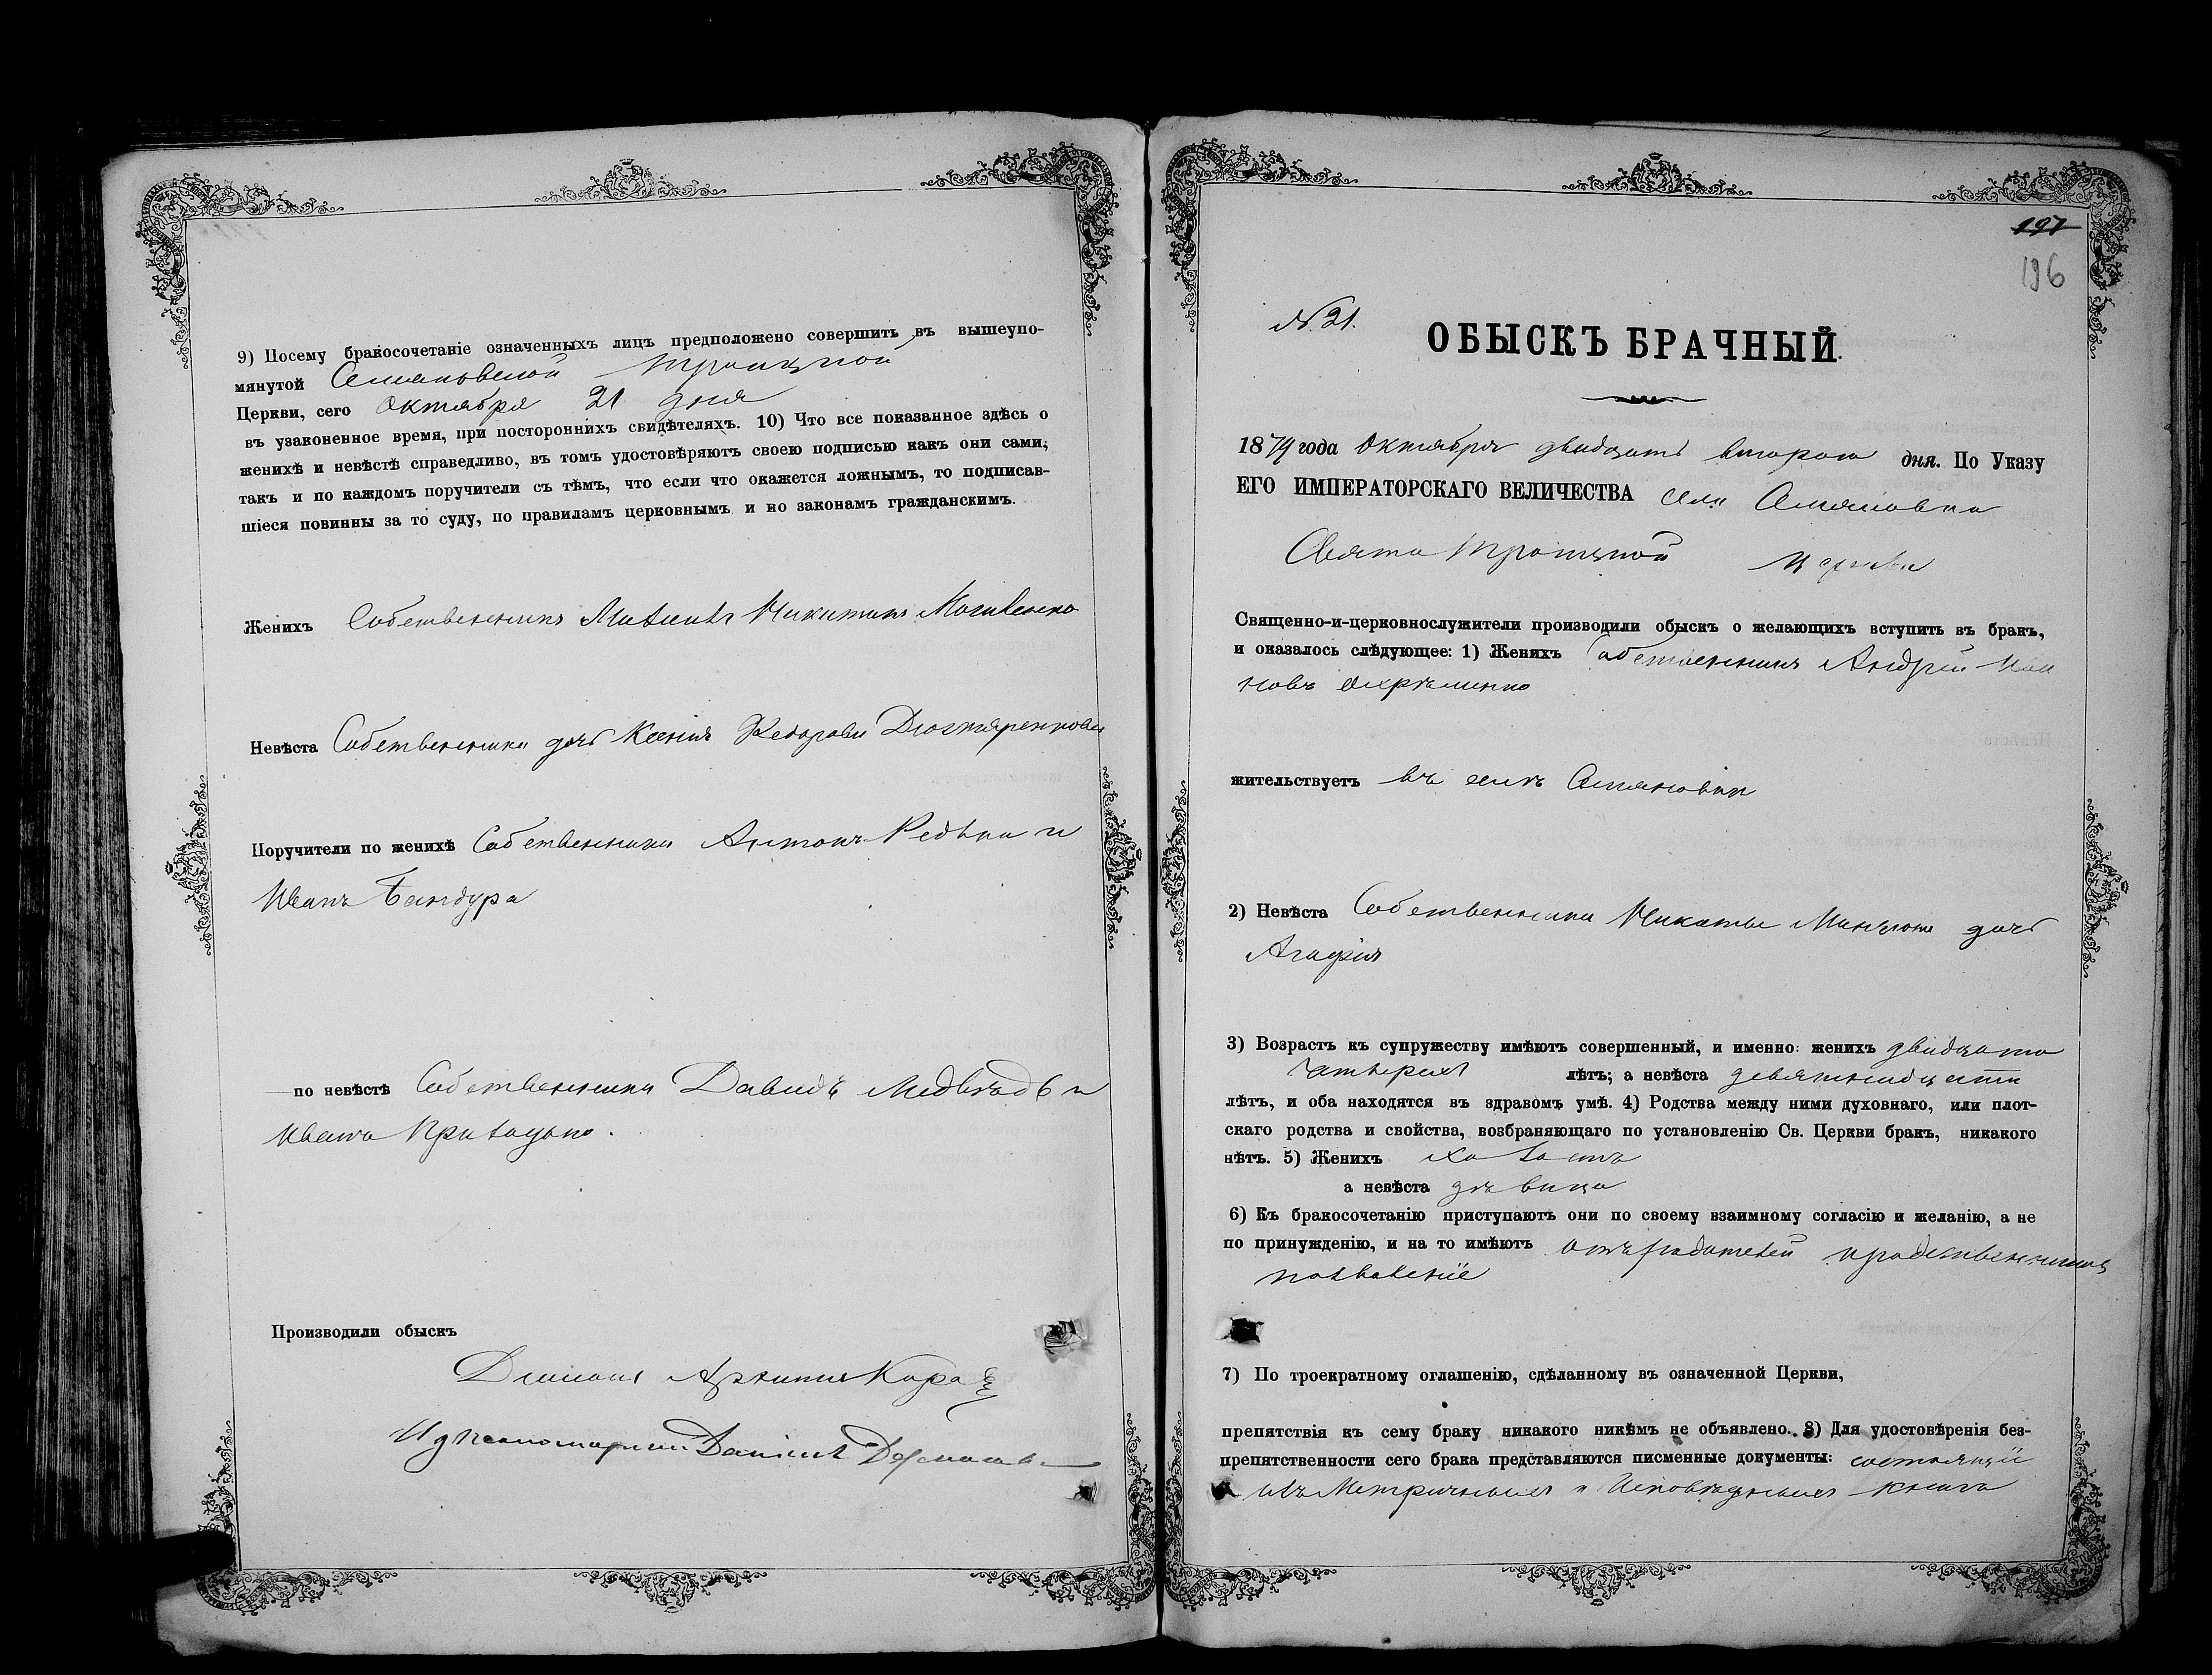 9) Посему бракосочетаніе означенныхъ лицъ предположено совершить въ вышеупо-
мянутой Семяновской Троицкой
Церкви, сего Октября 21 дня
въ узаконенное время, при постороннихъ свидѣтеляхъ. 10) Что все показанное здѣсь о
женихѣ и невѣстѣ справедливо, въ томъ удостовѣряютъ своею подписью какъ они сами,
такъ и по каждомъ поручители съ тѣмъ, что если что окажется ложнымъ, то подписав-
шіеся повинны за то суду, по правиламъ церковнымъ и по законамъ гражданскимъ.
Женихъ Собственникъ Михаилъ Никитинъ
Невѣста Собственника дочь Ксенія Федорова
Поручители по женихѣ Собственники Антонъ Редька и
Иванъ Бандура
по невѣстѣ Собственники Давидъ Медвѣдь и
Иванъ
Производили обыскъ
Діаконъ
Даніилъ
197
196
№ 21.
ОБЫСКЪ БРАЧНЫЙ.
1874 года Октября двадцать втораго дня. По Указу
ЕГО ИМПЕРАТОРСКАГО ВЕЛИЧЕСТВА села Семяновки
Свято Троицкой Церкви
Священно-и-церковнослужители производили обыскъ о желающихъ вступить въ бракъ,
и оказалось слѣдующее: 1) Женихъ Собственникъ Андрей Ива
новъ Охрѣменко
жительствуетъ въ селѣ Семяновки
2) Невѣста Собственника Никиты дочь
Агафія
3) Возрастъ къ супружеству имѣютъ совершенный, и именно: женихъ двадцати
четырехъ лѣтъ; а невѣста девятнадцати
лѣтъ, и оба находятся въ здравомъ умѣ. 4) Родства между ними духовнаго, или плот-
скаго родства и свойства, возбраняющаго по установленію Св. Церкви бракъ, никакого
нѣтъ. 5) Женихъ холостъ
а невѣста дѣвица
6) Къ бракосочетанію приступаютъ они по своему взаимному согласію и желанію, а не
по принужденію, и на то имѣютъ отъ родителей
позволеніе
7) По троекратному оглашенію, сдѣланному въ означенной Церкви,
препятствія къ сему браку никакого никѣмъ не объявлено. 8) Для удостовѣренія без-
препятственности сего брака представляются писменные документы: состоящіи
изъ Метричныхъ и Исповѣдныхъ книгъ